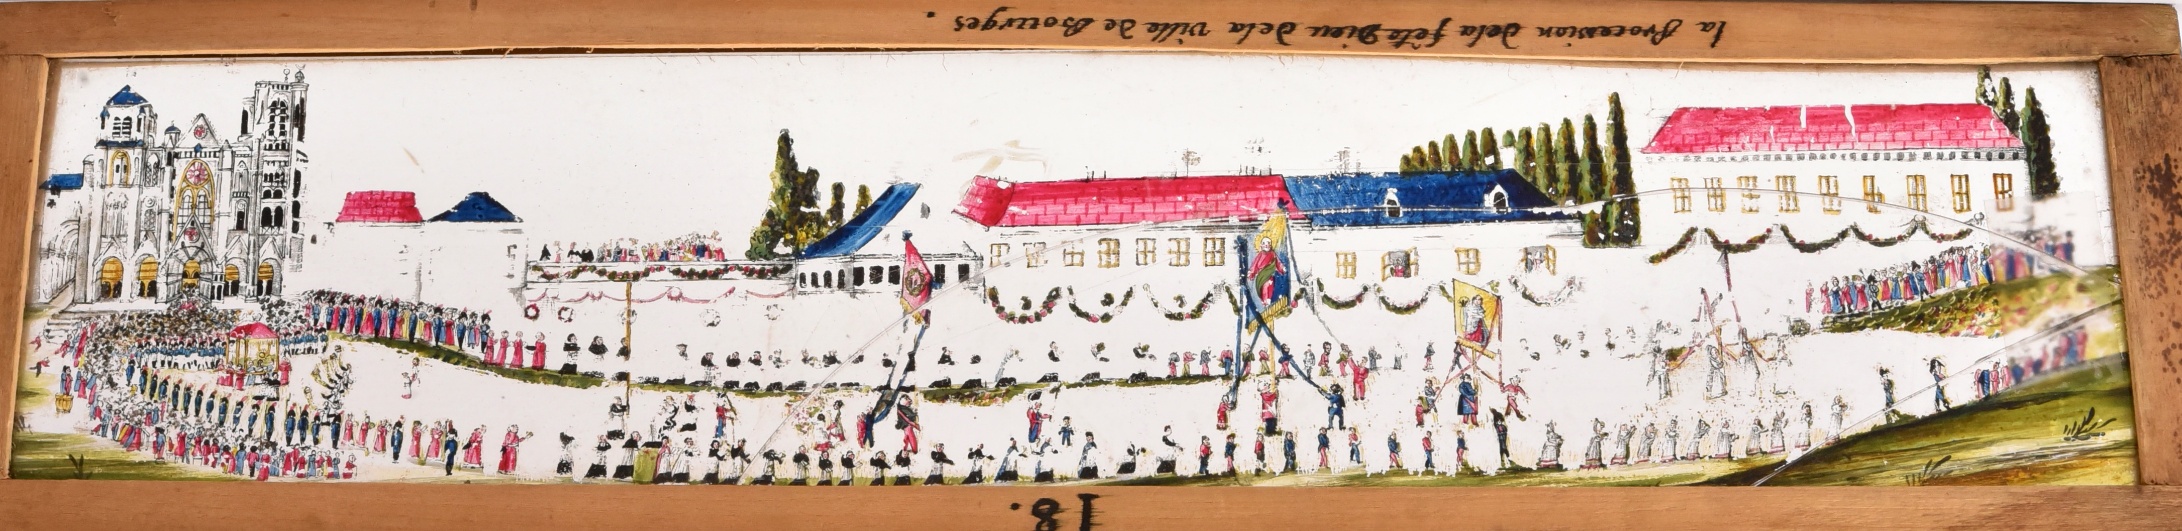 la procession dela fête Dieu dela ville de Bourges.
18.